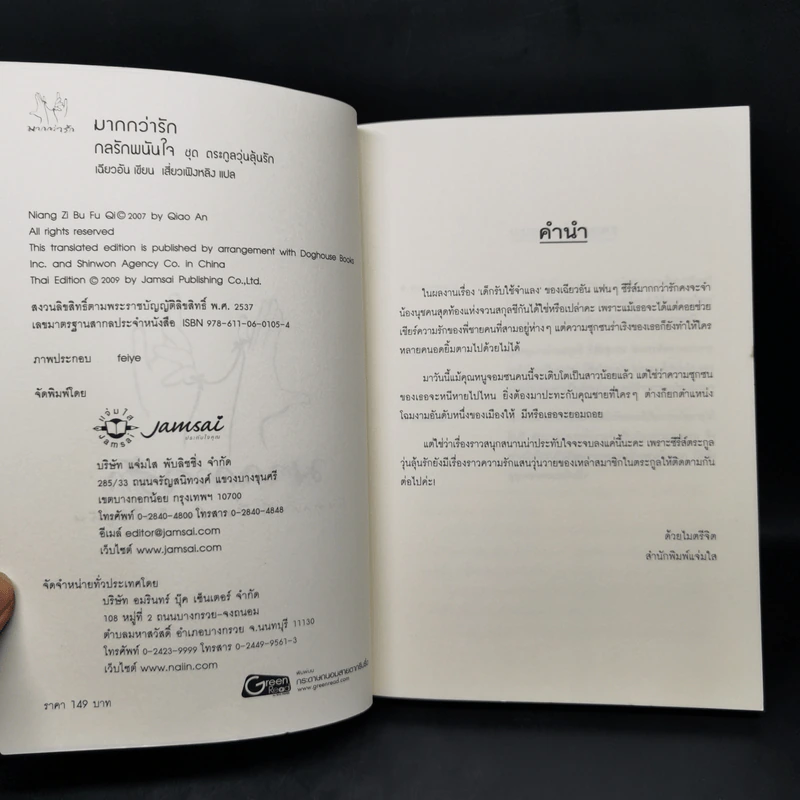 มากกว่ารัก
มากกว่ารัก
กลรักพนันใจ ชุด ตระกูลวุ่นลุ้นรัก
เฉียวอัน เขียน เสี่ยวเฟิงหลิง แปล
Niang Zi Bu Fu Qi© 2007 by Qiao An
All rights reserved
This translated edition is published by arrangement with Doghouse Books
Inc. and Shinwon Agency Co. in China
Thai Edition © 2009 by Jamsai Publishing Co.,Ltd.
สงวนลิขสิทธิ์ตามพระราชบัญญัติลิขสิทธิ์ พ.ศ. 2537
เลขมาตรฐานสากลประจำหนังสือ ISBN 978-611-06-0105-4
ภาพประกอบ feiye
จัดพิมพ์โดย
แจ่มใส
Jamsai
Jamsai
ประทับใจคุณ
บริษัท แจ่มใส พับลิชชิ่ง จำกัด
285/33 ถนนจรัญสนิทวงศ์ แขวงบางขุนศรี
เขตบางกอกน้อย กรุงเทพฯ 10700
โทรศัพท์ 0-2840-4800 โทรสาร 0-2840-4848
อีเมล์ editor@jamsai.com
เว็บไซต์ www.jamsai.com
จัดจำหน่ายทั่วประเทศโดย
บริษัท อมรินทร์ บุ๊ค เซ็นเตอร์ จำกัด
108 หมู่ที่ 2 ถนนบางกรวย-จงถนอม
ตำบลมหาสวัสดิ์ อำเภอบางกรวย จ.นนทบุรี 11130
โทรศัพท์ 0-2423-9999 โทรสาร 0-2449-9561-3
เว็บไซต์ www.naiin.com
Green Read
พิมพ์บน
กระดาษถนอมสายตากรีนรี้ด
www.greenread.com
ราคา 149 บาท
คำนำ
ในผลงานเรื่อง 'เด็กรับใช้จำแลง' ของเฉียวอัน แฟนๆ ซีรี่ส์มากกว่ารักคงจะจำ
น้องนุชคนสุดท้องแห่งจวนสกุลซีกันได้ใช่หรือเปล่าคะ เพราะแม้เธอจะได้แต่คอยช่วย
เชียร์ความรักของพี่ชายคนที่สามอยู่ห่างๆ แต่ความซุกซนร่าเริงของเธอก็ยังทำให้ใคร
หลายคนอดยิ้มตามไปด้วยไม่ได้
มาวันนี้แม้คุณหนูจอมซนคนนี้จะเติบโตเป็นสาวน้อยแล้ว แต่ใช่ว่าความซุกซน
ของเธอจะหนีหายไปไหน ยิ่งต้องมาปะทะกับคุณชายที่ใครๆ ต่างก็ยกตำแหน่ง
โฉมงามอันดับหนึ่งของเมืองให้ มีหรือเธอจะยอมถอย
แต่ใช่ว่าเรื่องราวสนุกสนานน่าประทับใจจะจบลงแค่นี้นะคะ เพราะซีรี่ส์ตระกูล
วุ่นลุ้นรักยังมีเรื่องราวความรักแสนวุ่นวายของเหล่าสมาชิกในตระกูลให้ติดตามกัน
ต่อไปค่ะ!
ด้วยไมตรีจิต
สำนักพิมพ์แจ่มใส